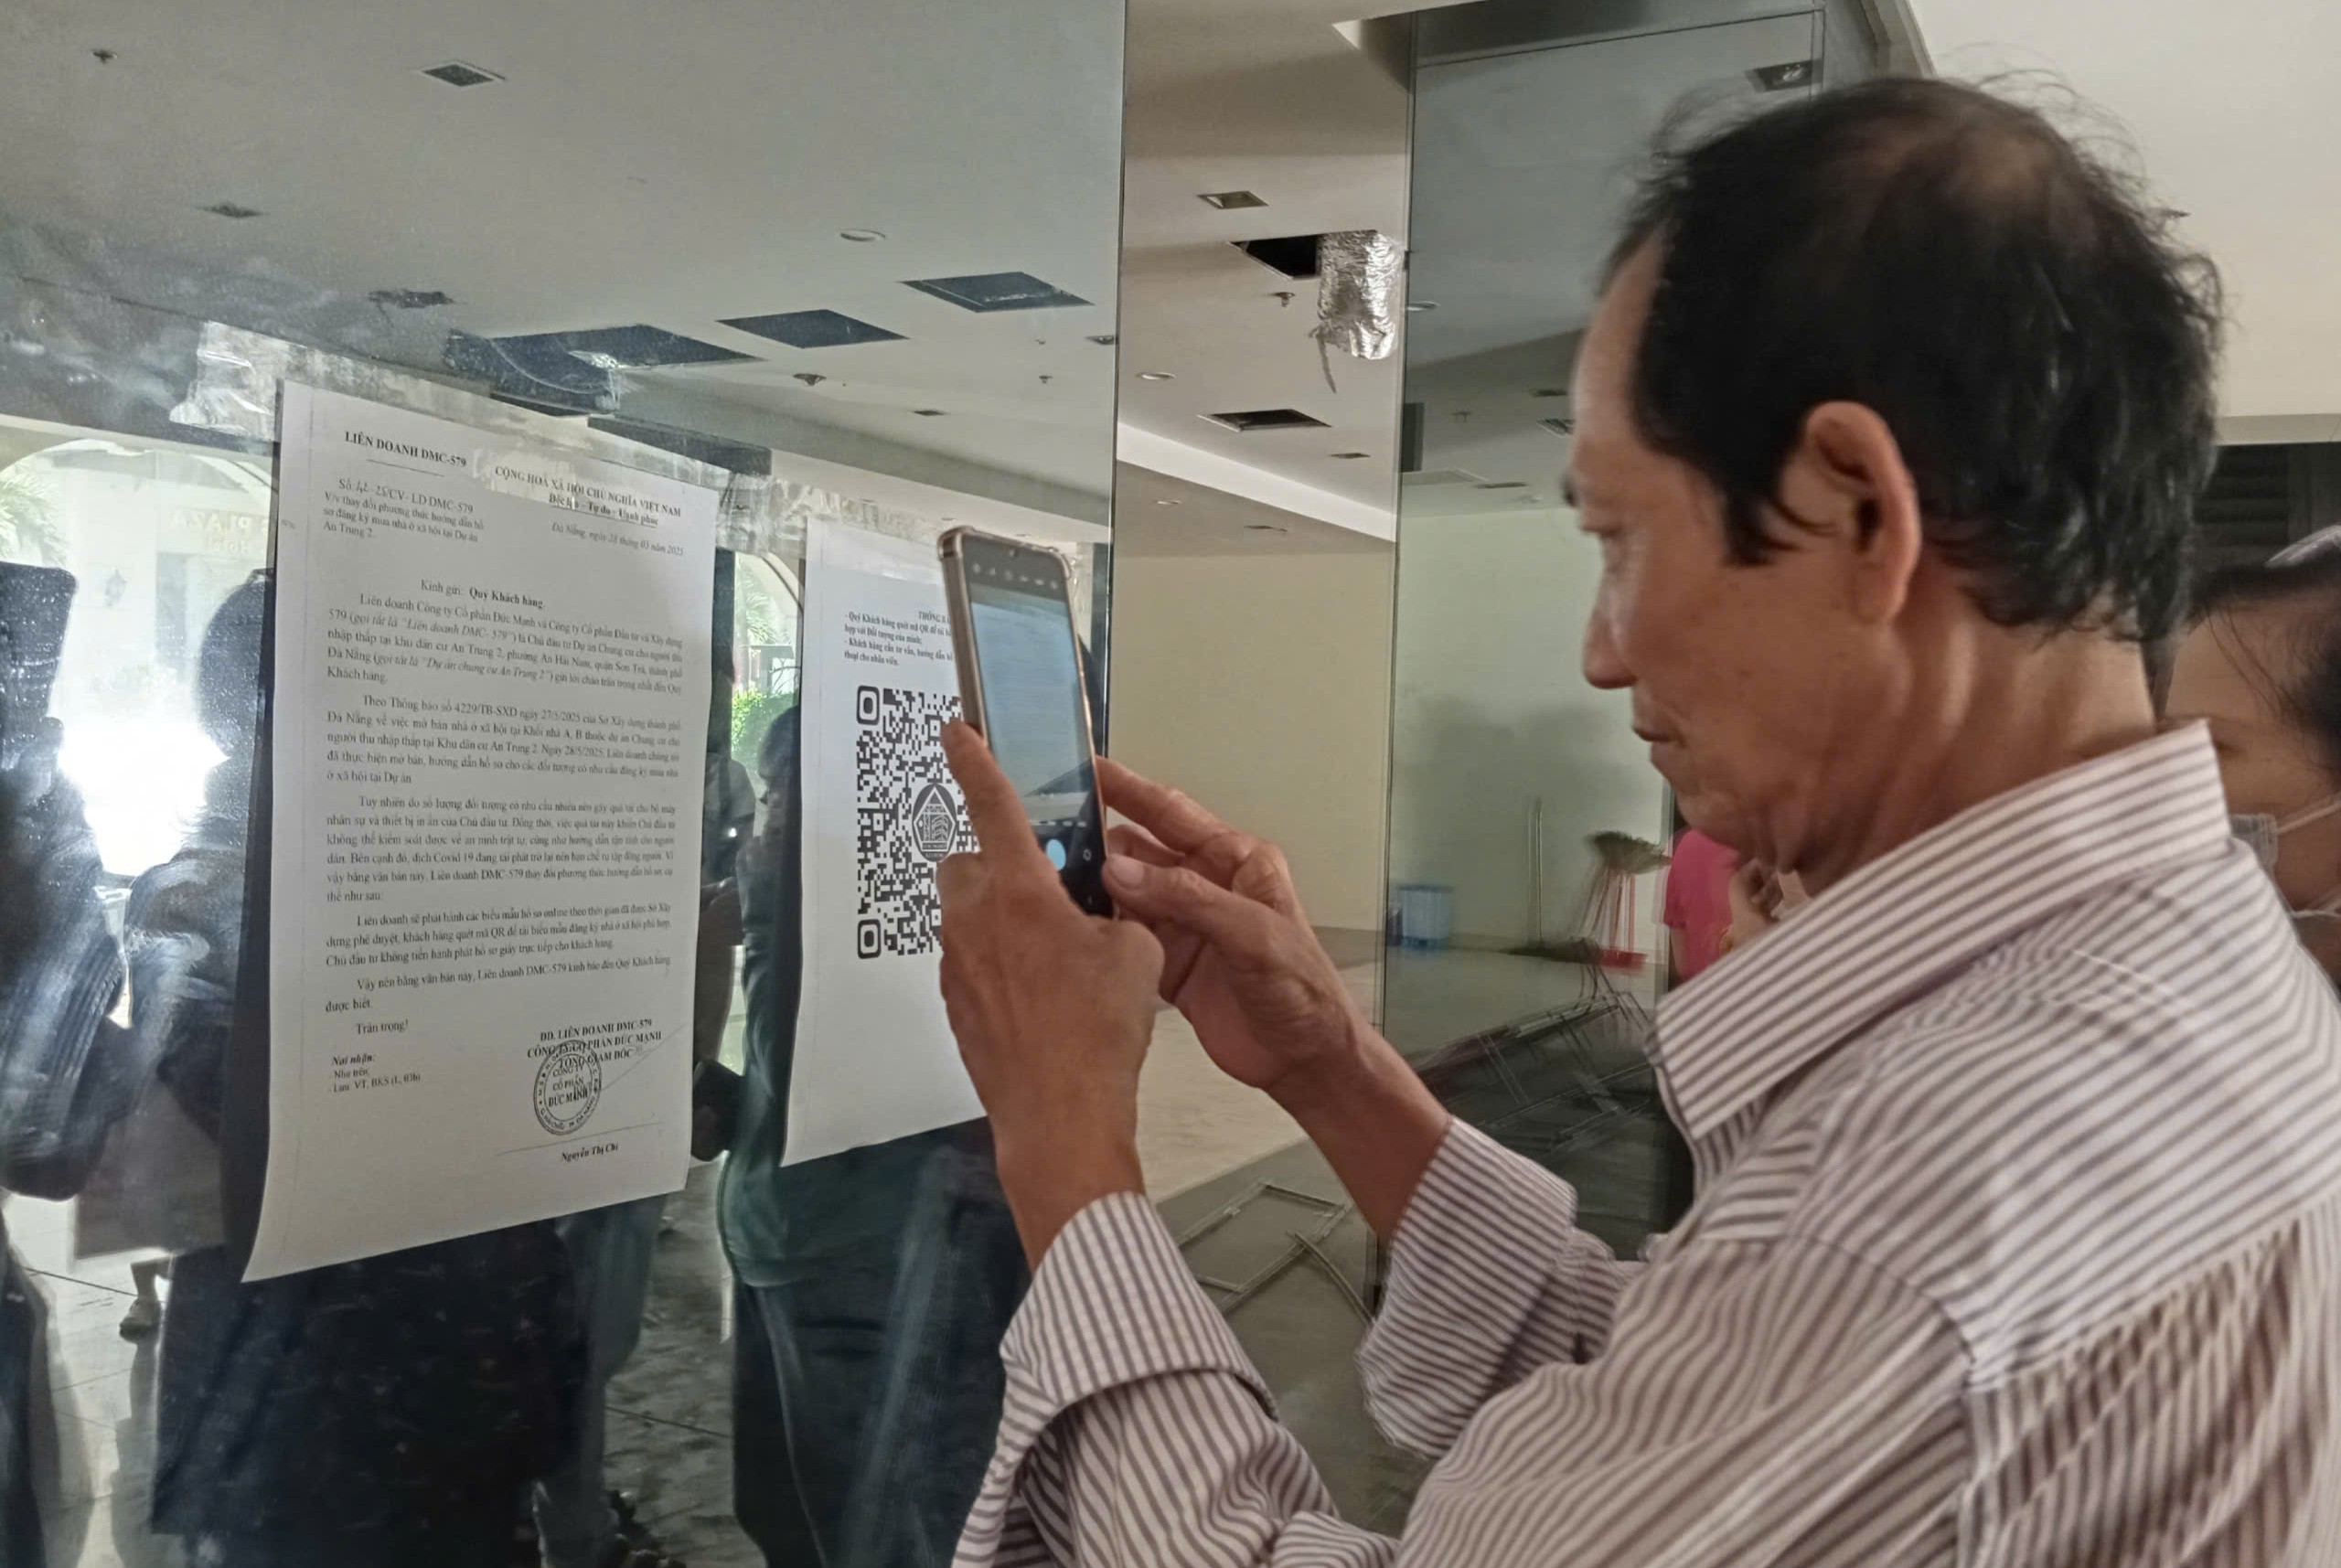 LIÊN DOANH DMC-579
CỘNG HOÀ XÃ HỘI CHỦ NGHĨA VIỆT NAM
Độc lập - Tự do - Hạnh phúc
Số: 42-25/CV- LD DMC-579
V/v thay đổi phương thức hướng dẫn hồ
sơ đăng ký mua nhà ở xã hội tại Dự án
An Trung 2.
Đà Nẵng, ngày 28 tháng 05 năm 2025
Kính gửi: Quý Khách hàng.
Liên doanh Công ty Cổ phần Đức Mạnh và Công ty Cổ phần Đầu tư và Xây dựng
579 (gọi tắt là "Liên doanh DMC- 579") là Chủ đầu tư Dự án Chung cư cho người thu
nhập thấp tại khu dân cư An Trung 2, phường An Hải Nam, quận Sơn Trà, thành phố
Đà Nẵng (gọi tắt là "Dự án chung cư An Trung 2") gửi lời chào trân trọng nhất đến Quý
Khách hàng.
Theo Thông báo số 4229/TB-SXD ngày 27/5/2025 của Sở Xây dựng thành phố
Đà Nẵng về việc mở bán nhà ở xã hội tại Khối nhà A, B thuộc dự án Chung cư cho
người thu nhập thấp tại Khu dân cư An Trung 2. Ngày 28/5/2025, Liên doanh chúng tôi
đã thực hiện mở bán, hướng dẫn hồ sơ cho các đối tượng có nhu cầu đăng ký mua nhà
ở xã hội tại Dự án.
Tuy nhiên do số lượng đối tượng có nhu cầu nhiều nên gây quá tải cho bộ máy
nhân sự và thiết bị in ấn của Chủ đầu tư. Đồng thời, việc quá tải này khiến Chủ đầu tư
không thể kiểm soát được về an ninh trật tự, cũng như hướng dẫn tận tình cho người
dân. Bên cạnh đó, dịch Covid 19 đang tái phát trở lại nên hạn chế tụ tập đông người. Vì
vậy bằng văn bản này, Liên doanh DMC-579 thay đổi phương thức hướng dẫn hồ sơ, cụ
thể như sau:
Liên doanh sẽ phát hành các biểu mẫu hồ sơ online theo thời gian đã được Sở Xây
dựng phê duyệt, khách hàng quét mã QR để tải biểu mẫu đăng ký nhà ở xã hội phù hợp.
Chủ đầu tư không tiến hành phát hồ sơ giấy trực tiếp cho khách hàng.
Vậy nên bằng văn bản này, Liên doanh DMC-579 kính báo đến Quý Khách hàng
được biết.
Trân trọng!
Nơi nhận:
- Như trên;
- Lưu: VT, BKS (L, 03b)
ĐD. LIÊN DOANH DMC-579
CÔNG TY CỔ PHẦN ĐỨC MẠNH
TỔNG GIÁM ĐỐC
CÔNG TY
CỔ PHẦN
ĐỨC MẠNH
Nguyễn Thị Chi
THÔNG B
- Quý Khách hàng quét mã QR để tải
hợp với Đối tượng của mình;
- Khách hàng cần tư vấn, hướng dẫn
thoại cho nhân viên.
PLAZA